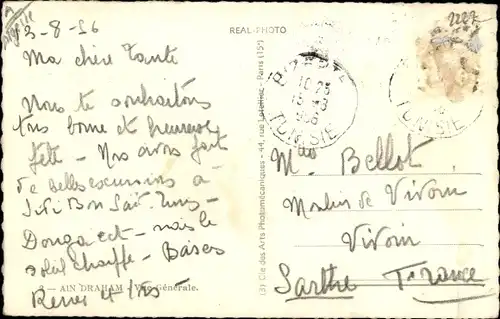 2287
REAL-PHOTO
3-8-56
Ma chère Tante
Nous te souhaitons
très bonne et heureuse
fête - Nos avons fait
de belles excursions à
Sidi Bou Saïd Tunis -
Dougga ect - mais le
soleil chauffe - Baisers
René et
AIN DRAHAM - Vue Générale.
(3) Cie des Arts Photomécaniques - 44, rue Letellier - Paris (15e)
TUNISIE
TUNISIE
Bellot
Moulin de Vivoin
Vivoin
Sarthe France